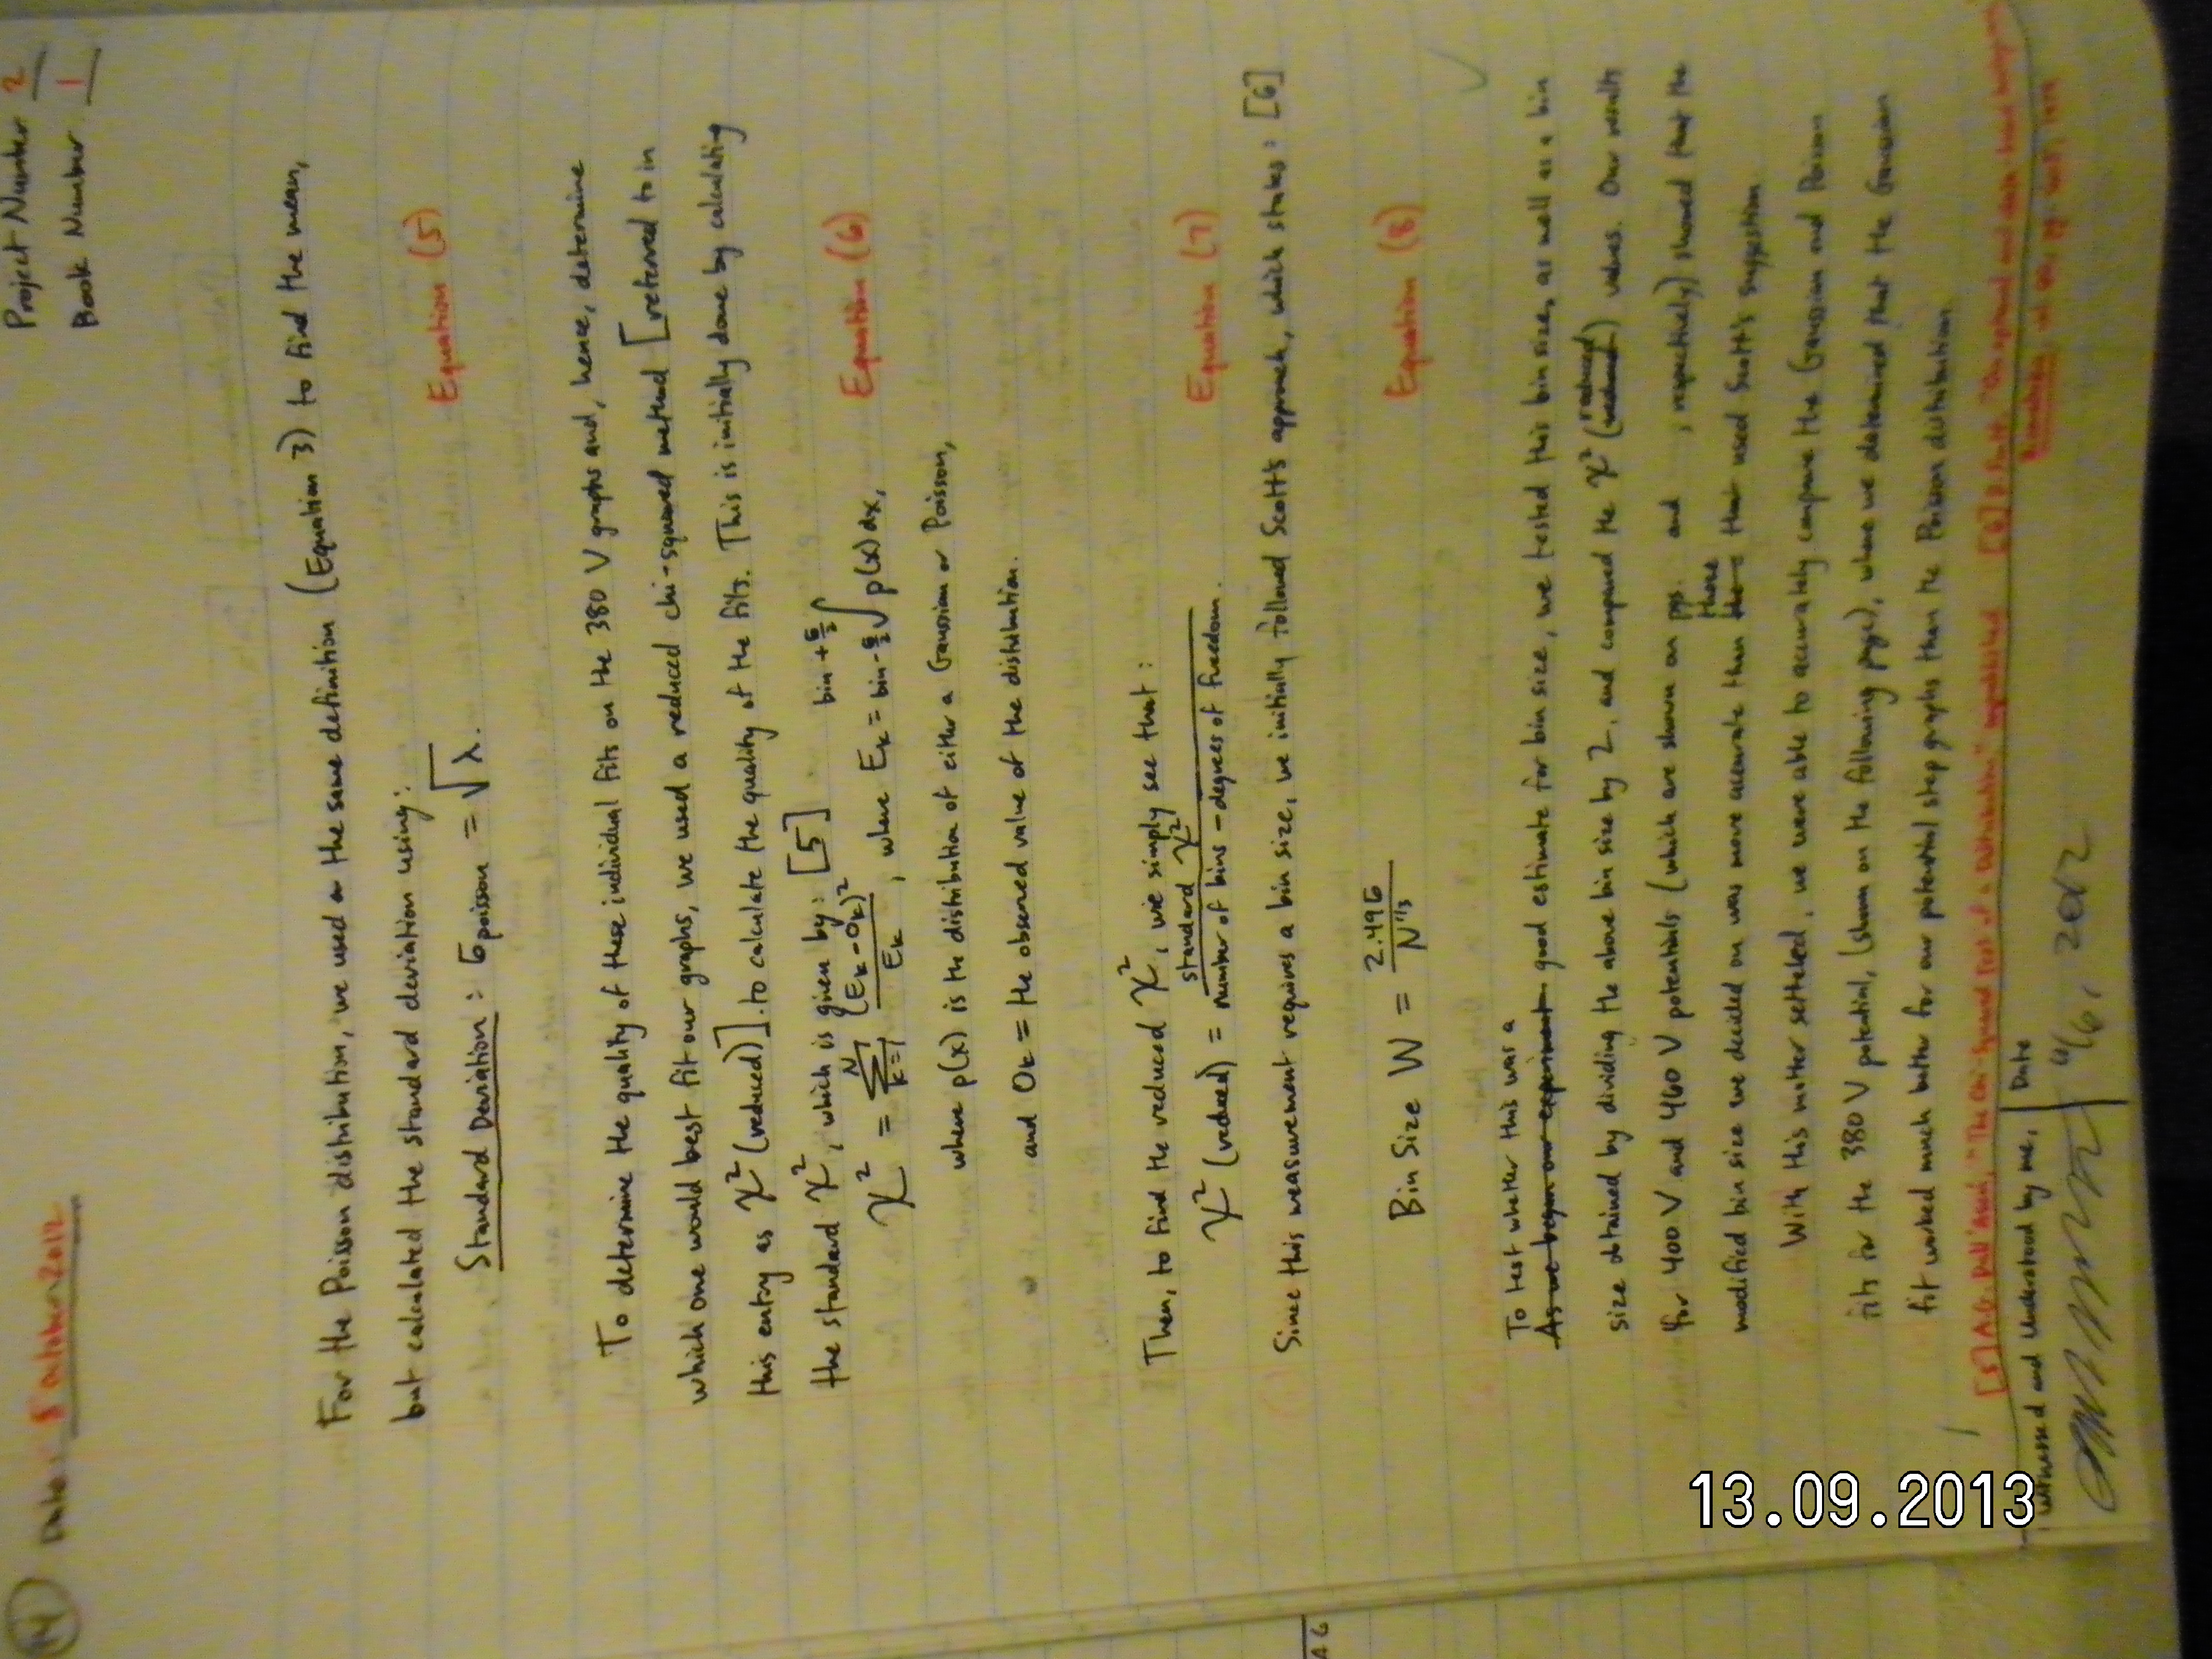 14
Date: 5 October 2012
Project Number 2
Book Number 1
For the Poisson distribution, we used the same definition (Equation 3) to find the mean,
but calculated the standard deviation using:
Standard Deviation: σpoisson = √λ. Equation (5)
To determine the quality of these individual fits on the 380 V graphs and, hence, determine
which one would best fit our graphs, we used a reduced chi-squared method [referred to in
this entry as χ² (reduced)]. to calculate the quality of the fits. This is initially done by calculating
the standard χ², which is given by: [5]
χ² = Σ_{k=1}^{N} (Ek - Ok)² / Ek, where Ek = bin - σ/2 ∫ bin + σ/2 p(x)dx, Equation (6)
where p(x) is the distribution of either a Gaussian or Poisson,
and Ok = the observed value of the distribution.
Then, to find the reduced χ², we simply see that:
χ² (reduced) = standard χ² / number of bins - degrees of freedom. Equation (7)
Since this measurement requires a bin size, we initially followed Scott's approach, which states: [6]
Bin Size W = 2.49σ / N^1/3 Equation (8)
To test wheter this was a
As we began our experiment good estimate for bin size, we tested this bin size, as well as a bin
size obtained by dividing the above bin size by 2, and compared the χ² (reduced) values. Our results
for 400 V and 460 V potentials (which are shown on pgs. and , respectively) showed that the
modified bin size we decided on was more accurate than those that used Scott's suggestion
With this matter setteled, we were able to accurately compare the Gaussian and Poisson
fits for the 380 V potential, (shown on the following page), where we determined that the Gaussian
fit worked much better for our potential step graphs than the Poisson distribution.
[5] "The Chi-Squared Test of a Distribution"
[6]
Witnessed and Understood by me,
Date
16, 2012
13.09.2013